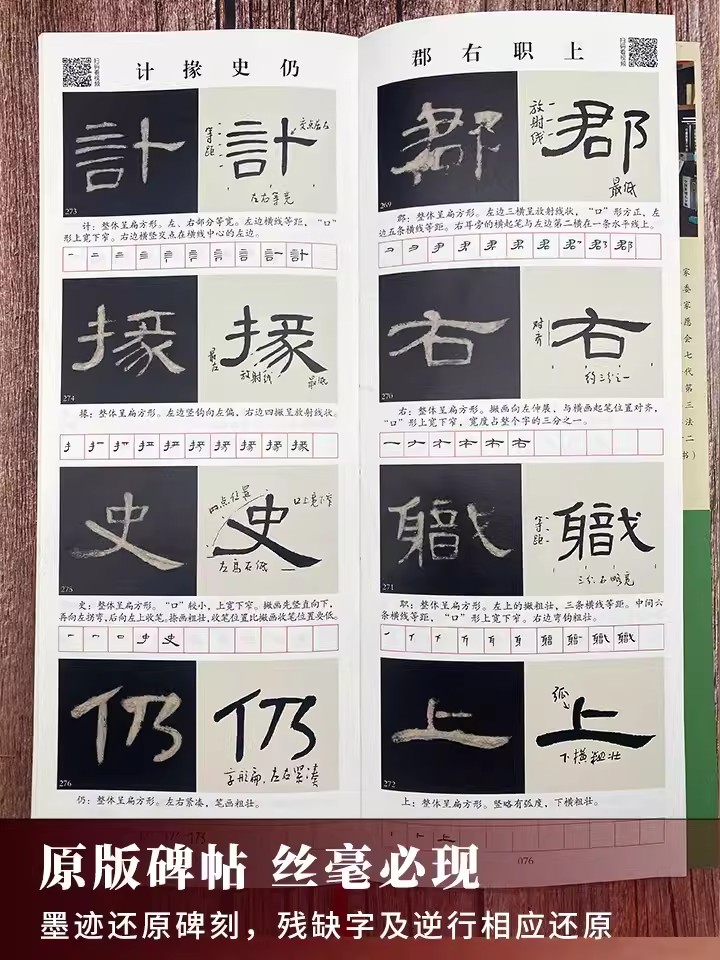 计 掾 史 仍
扫码看视频
計
計
等距
交点居左
左右等宽
273
计：整体呈扁方形。左、右部分等宽。左边横线等距，“口”
形上宽下窄。右边横竖交点在横线中心的左边。
掾
掾
最左
放射线
最低
274
掾：整体呈扁方形。左边竖钩向左偏，右边四撇呈放射线状。
史
史
四点位置
口上宽下窄
左高右低
275
史：整体呈扁方形。“口”较小，上宽下窄。撇画先竖直向下，
再向左拐弯，后向左上收笔。捺画粗壮，收笔位置比撇画收笔位置要低。
仍
仍
字形扁，左右紧凑
276
仍：整体呈扁方形。左右紧凑，笔画粗壮。
郡 右 职 上
扫码看视频
郡
郡
放射线
最低
269
郡：整体呈扁方形。左边三横呈放射线状，“口”形方正，左
边五条横线等距。右耳旁的横起笔与左边第二横在一条水平线上。
右
右
对齐
约三分之一
270
右：整体呈扁方形。撇画向左伸展，与横画起笔位置对齐，
“口”形上宽下窄，宽度占整个字的三分之一。
職
職
等距
三分，右略宽
271
职：整体呈扁方形。左上的撇粗壮，三条横线等距。中间六
条横线等距，“口”形上宽下窄。右边弯钩粗壮。
上
上
弧
下横粗壮
272
上：整体呈扁方形。竖略有弧度，下横粗壮。
076
家委家愿会七代第三法二书）
原版碑帖 丝毫必现
墨迹还原碑刻，残缺字及逆行相应还原